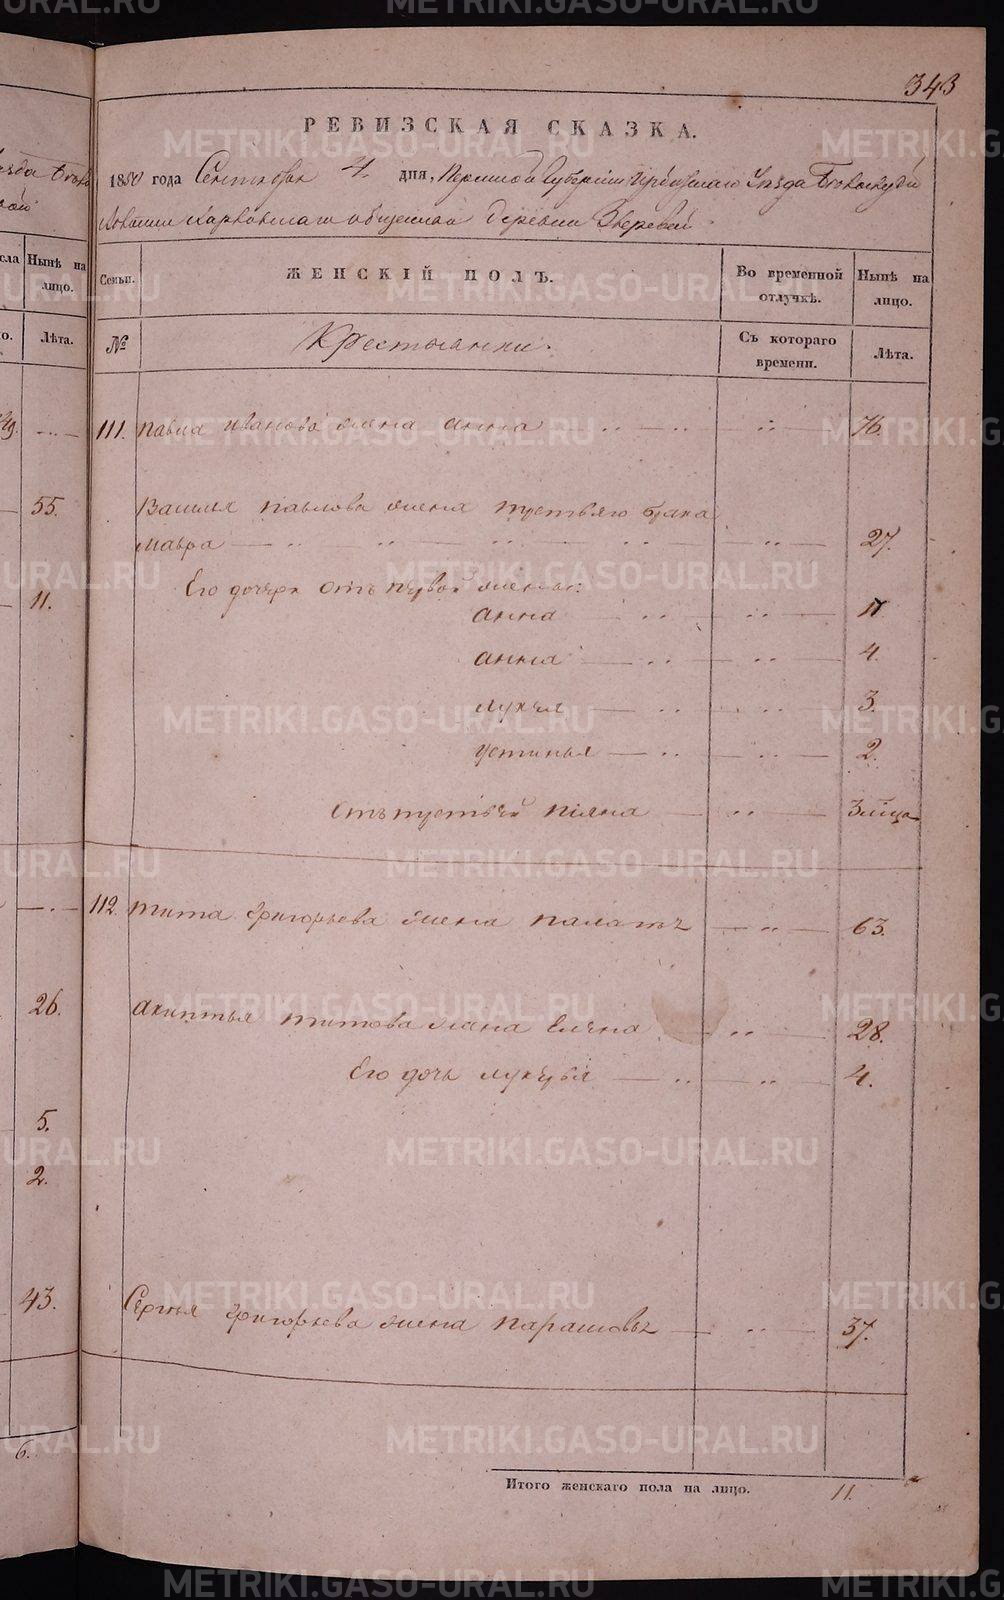 343
РЕВИЗСКАЯ СКАЗКА.
1850 года Сентября 4 дня, Пермской Губернии Ирбитскаго Уезда
деревни Зверевой
Семьи. ЖЕНСКІЙ ПОЛЪ. Во временной отлучкѣ. Нынѣ на лицо.
№ Крестьянки. Съ котораго времени. Лѣта.
111. Павла Иванова жена Анна 76.
Василья Павлова жена третьяго брака
Мавра 27.
Его дочери отъ первой жены:
Анна 11
Анна 4.
Лукья 3.
Устинья 2.
Отъ третьей 3 мѣца
112. Тита Григорьева жена 63.
Титова жена Елена 28.
Его дочь Лукерья 4.
Сергья Григорьева жена Парасковья 37.
Итого женскаго пола на лицо. 11.
Нынѣ на лицо.
Лѣта.
55.
11.
26.
5.
2.
43.
6.
METRIKI.GASO-URAL.RU